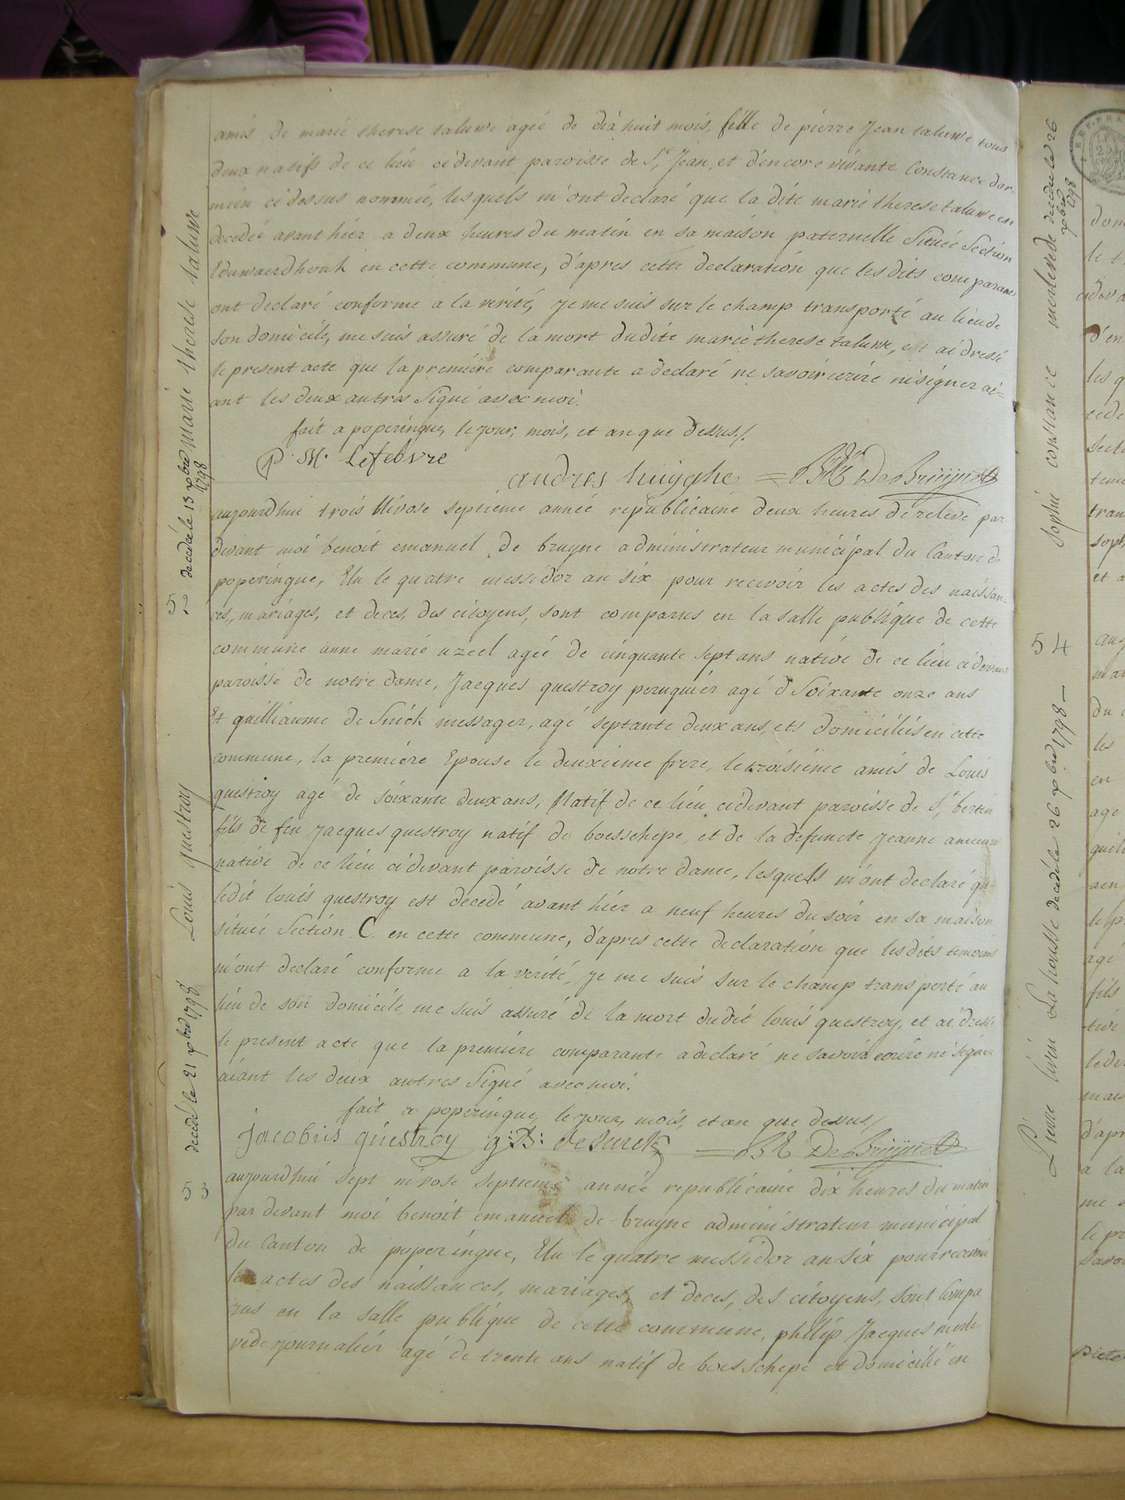 amis de marie therese taluwe agée de dix huit mois, fille de pierre Jean taluwe tous
deux natifs de ce lieu cidevant paroisse de St Jean, et d'encore vivante Constance dor-
mieu ci dessus nommée, lesquels m'ont declaré que la dite marie therese taluwe est
decedée avant hier a deux heures du matin en sa maison paternelle Située Section
en cette commune, d'apres cette declaration que les dits comparans
ont declaré conforme a la verité, Je me suis sur le champ transporté au lieu de
son domicile, me suis assuré de la mort dudite marie therese taluwe, et ai dressé
le present acte que la premiére comparante a declaré ne savoir ecrire ni signer ai-
ant les deux autres Signé avec moi.
fait a poperingue, le jour, mois, et an que dessus/.
P. M. Lefebvre
andries huijghe = B: E De Bruijne
aujourdhui trois Nivose septiéme année republicaine deux heures de relevé par
devant moi benoit emanuel de bruyne administrateur municipal du Canton de
poperingue, Elu le quatre messidor an six pour recevoir les actes des naissan-
ces, mariages, et deces, des citoyens, sont comparus en la salle publique de cette
commune anne marie uzeel agée de cinquante sept ans native de ce lieu cidevant
paroisse de notre dame, Jacques questroy peruquier agé d Soixante onze ans
Et guilliaume de Snick messager, agé septante deux ans, ets domiciliés en cette
commune, la premiére Epouse le deuxieme frere, le troisiéme amis de Louis
questroy agé de soixante deux ans, Natif de ce lieu cidevant paroisse de St bertin
fils de feu Jacques questroy natif de boesschepe, et de la defuncte Jeanne
native de ce lieu cidevant paroisse de notre dame, lesquels m'ont declaré que
ledit louis questroy est decedé avant hier a neuf heures du soir en sa maison
située Section C en cette commune, d'apres cette declaration que les dits temoins
m'ont declaré conforme a la verité, je me suis sur le champ transporté au
lieu de son domicile me suis assuré de la mort dudit louis questroy, et ai dressé
le present acte que la premiére comparante a declaré ne savoir ecrire ni signer
aiant les deux autres Signé avec moi.
fait a poperingue, le jour, mois, et an que dessus/
Jacobus questroy g: B: desnick = B: E De Bruijne
aujourdhui sept nivose septieme année republicaine dix heures du matin
par devant moi benoit emanuel de bruyne administrateur municipal
du Canton de poperingue, Elu le quatre messidor an six pour recevoir
les actes des naissances, mariages, et deces, des citoyens, sont compa
rus en la salle publique de cette commune, philip Jacques
journalier agé de trente ans natif de boesschepe et domicilié en
marie therese taluwe
decedé le 13 xbre 1798
52
Louis questroy
decedé le 21 xbre 1798
53
Sophie constance decedée le 26 xbre 1798
54
Pierre decedé le 26 xbre 1798